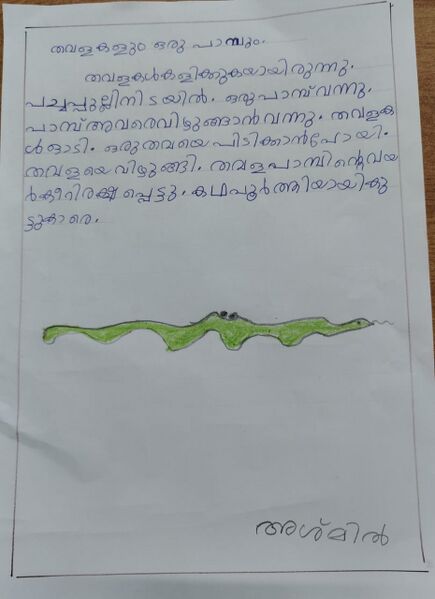 തവളകളും ഒരു പാമ്പും.
തവളകൾകളിക്കുകയായിരുന്നു.
പച്ചപ്പുല്ലിനിടയിൽ. ഒരുപാമ്പ് വന്നു.
പാമ്പ് അവരെവിഴുങ്ങാൻ വന്നു. തവളക
ൾഓടി. ഒരുതവയെ പിടിക്കാൻപോയി.
തവളയെ വിഴുങ്ങി. തവളപാമ്പിന്റെവയ
ർകീറിരക്ഷപ്പെട്ടു. കഥപൂർത്തിയായികൂ
ട്ടുകാരെ.
അശ്മിൽ